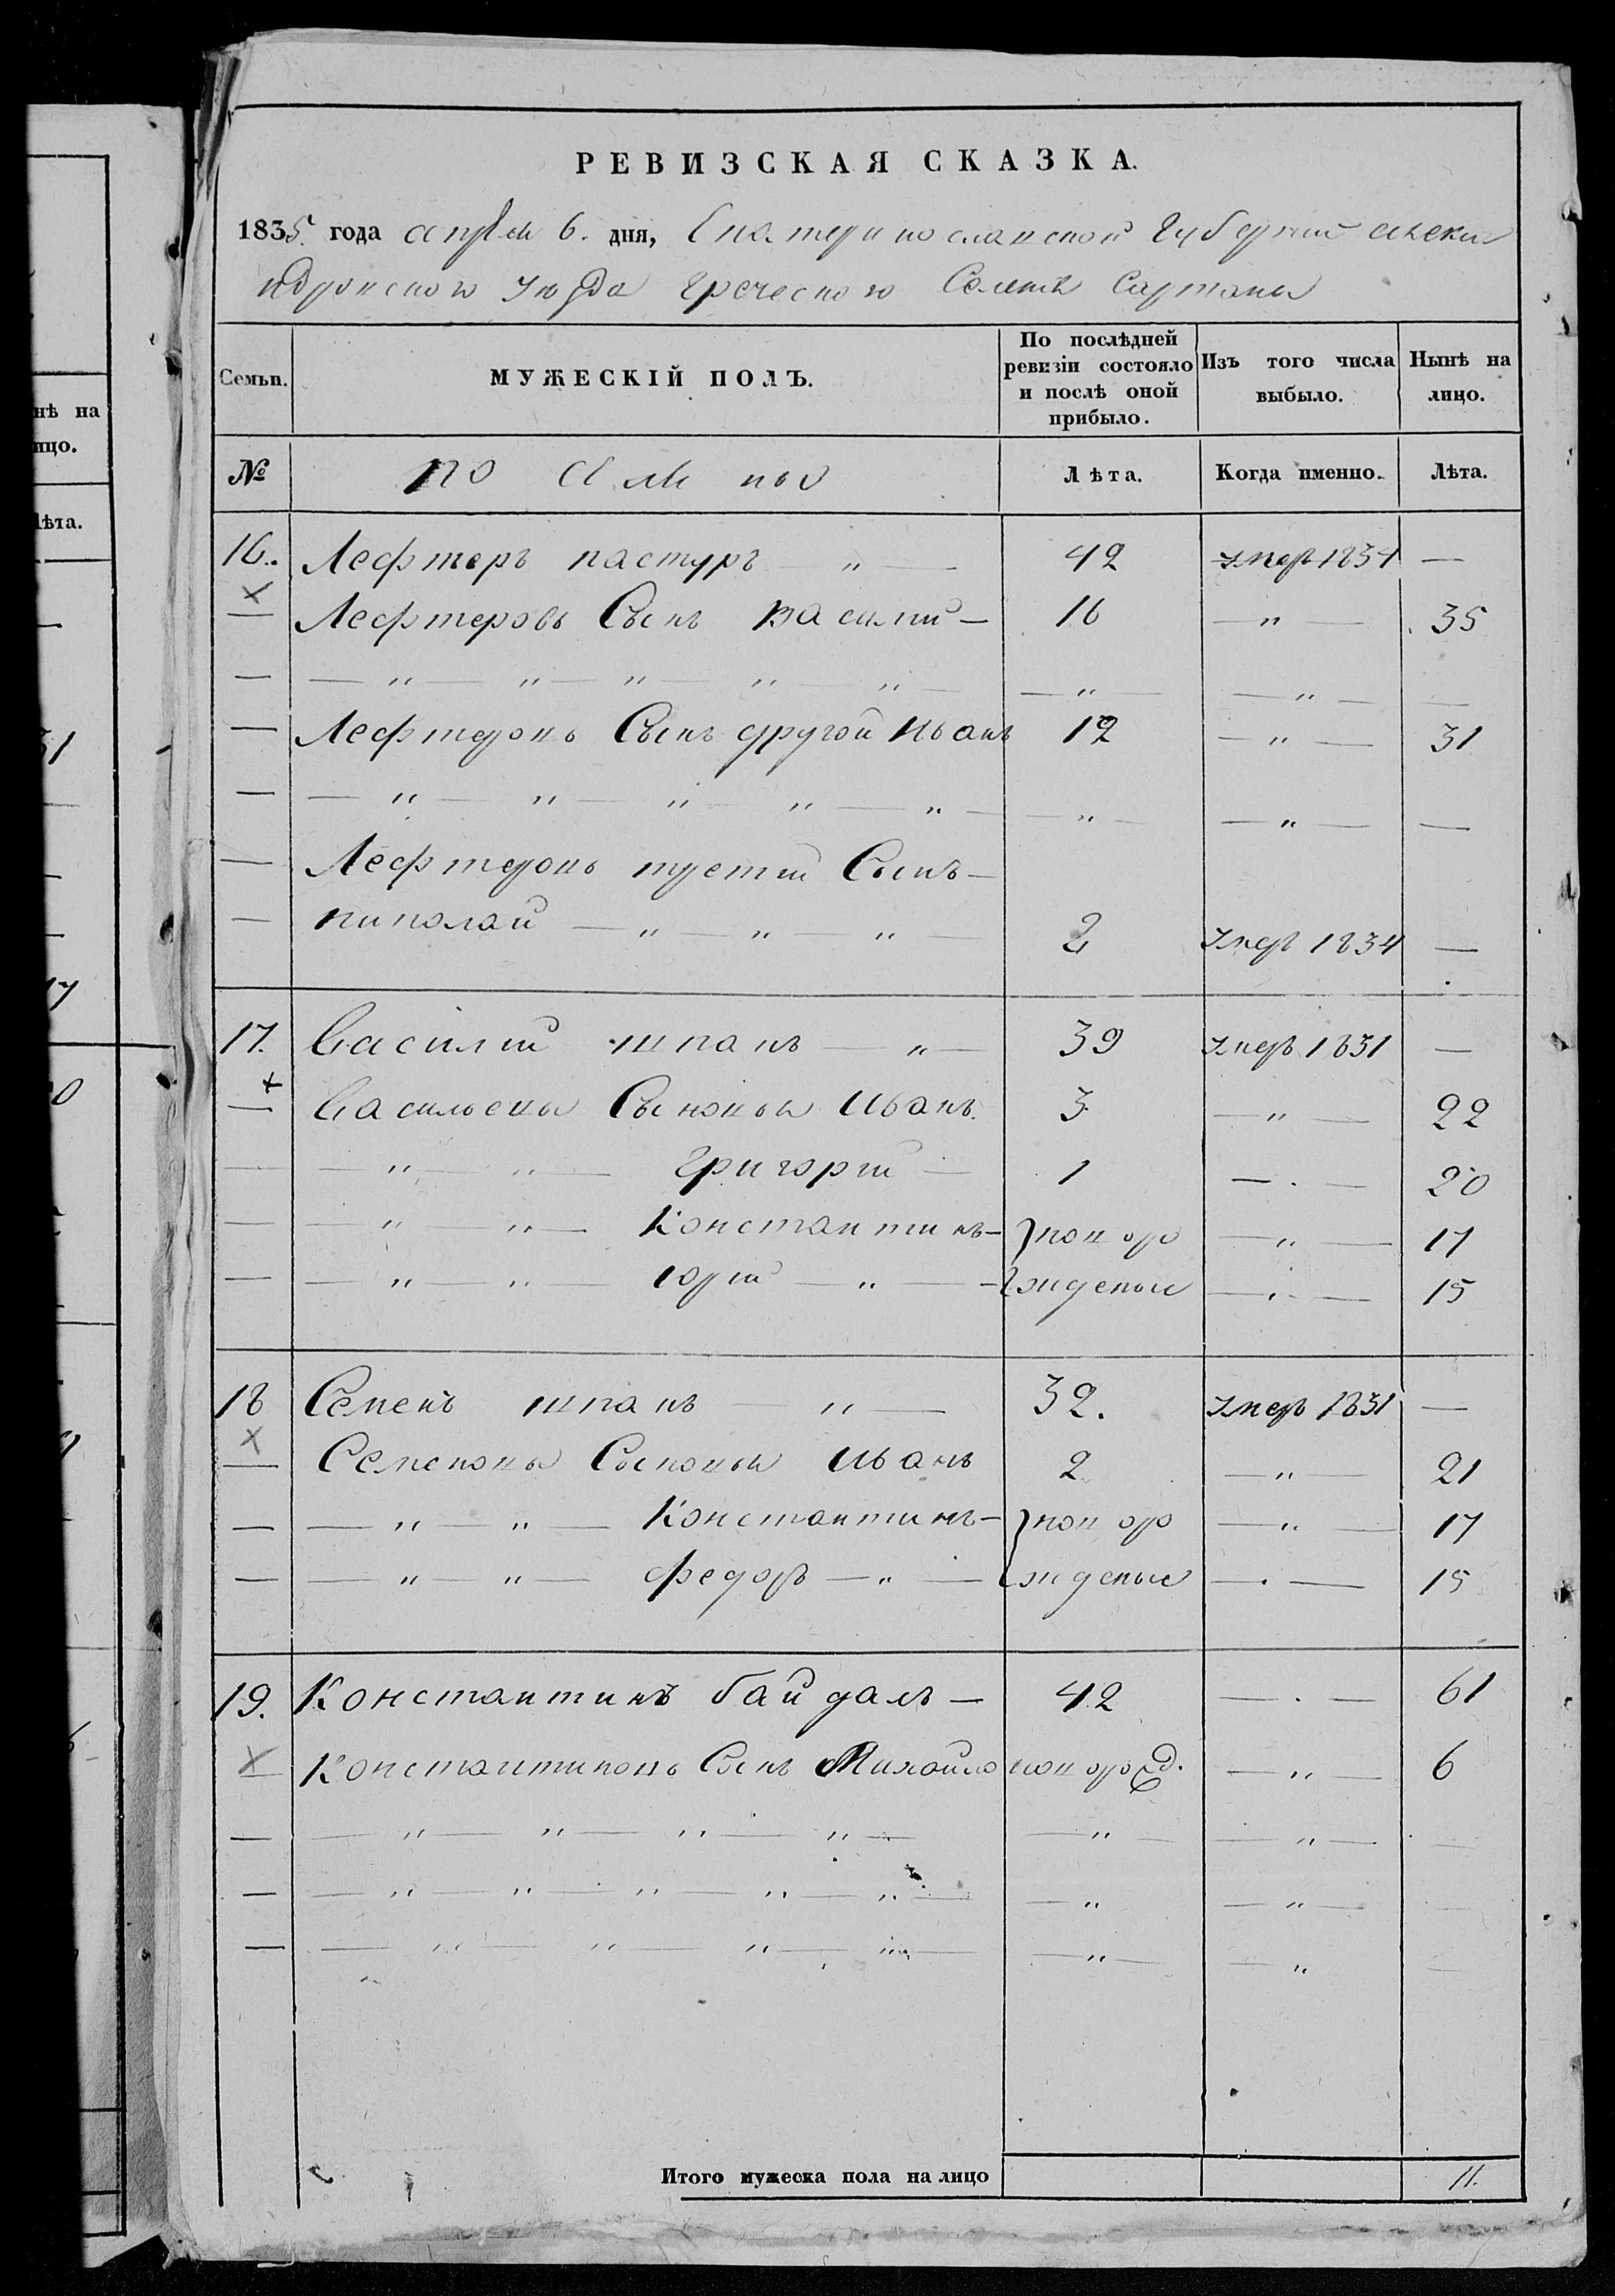 нѣ на
ицо.
лѣта.
31
17
0
РЕВИЗСКАЯ СКАЗКА.
1835 года апреля 6. дня, Екатеринославской Губернии алекса
ндровского уезда греческого Селения Сартаны
Семьи. МУЖЕСКІЙ ПОЛЪ. По послѣдней ревизіи состояло и послѣ оной прибыло. Изъ того числа выбыло. Нынѣ на лицо.
№ Лѣта. Когда именно. Лѣта.
16. Лефтеръ пастуръ — „ — 42 умеръ 1834 —
х Лефтеровъ Сынъ василий — 16 — „ — 35
— — „ — „ — „ — „ — „ — — „ — — „ — —
— Лефтеровъ Сынъ другой иванъ 12 — „ — 31
— — „ — „ — „ — „ — „ — — „ — — „ — —
— Лефтеровъ третий Сынъ —
— николай — „ — „ — „ — 2 умеръ 1834 —
17. Василий шпанъ — „ — 39 умеръ 1831 —
х Васильевы Сыновьи иванъ. 3 — „ — 22
— — „ — „ — григорий — 1 — „ — 20
— — „ — „ — Константинъ — новоро — „ — 17
— — „ — „ — юрий — „ — жденые — „ — 15
18 Семенъ шпанъ — „ — 32. умеръ 1831 —
х Семеновы Сыновьи иванъ 2 — „ — 21
— — „ — „ — Константинъ — новоро — „ — 17
— — „ — „ — федоръ — „ — жденые — „ — 15
19. Константинъ байдалъ — 42 — „ — 61
х Константиновъ Сынъ Михайло новорожд. — „ — 6
— — „ — „ — „ — „ — — „ — — „ — —
— — „ — „ — „ — „ — „ — — „ — „ — —
— — „ — „ — „ — „ — — „ — — „ —
Итого мужеска пола на лицо 11.